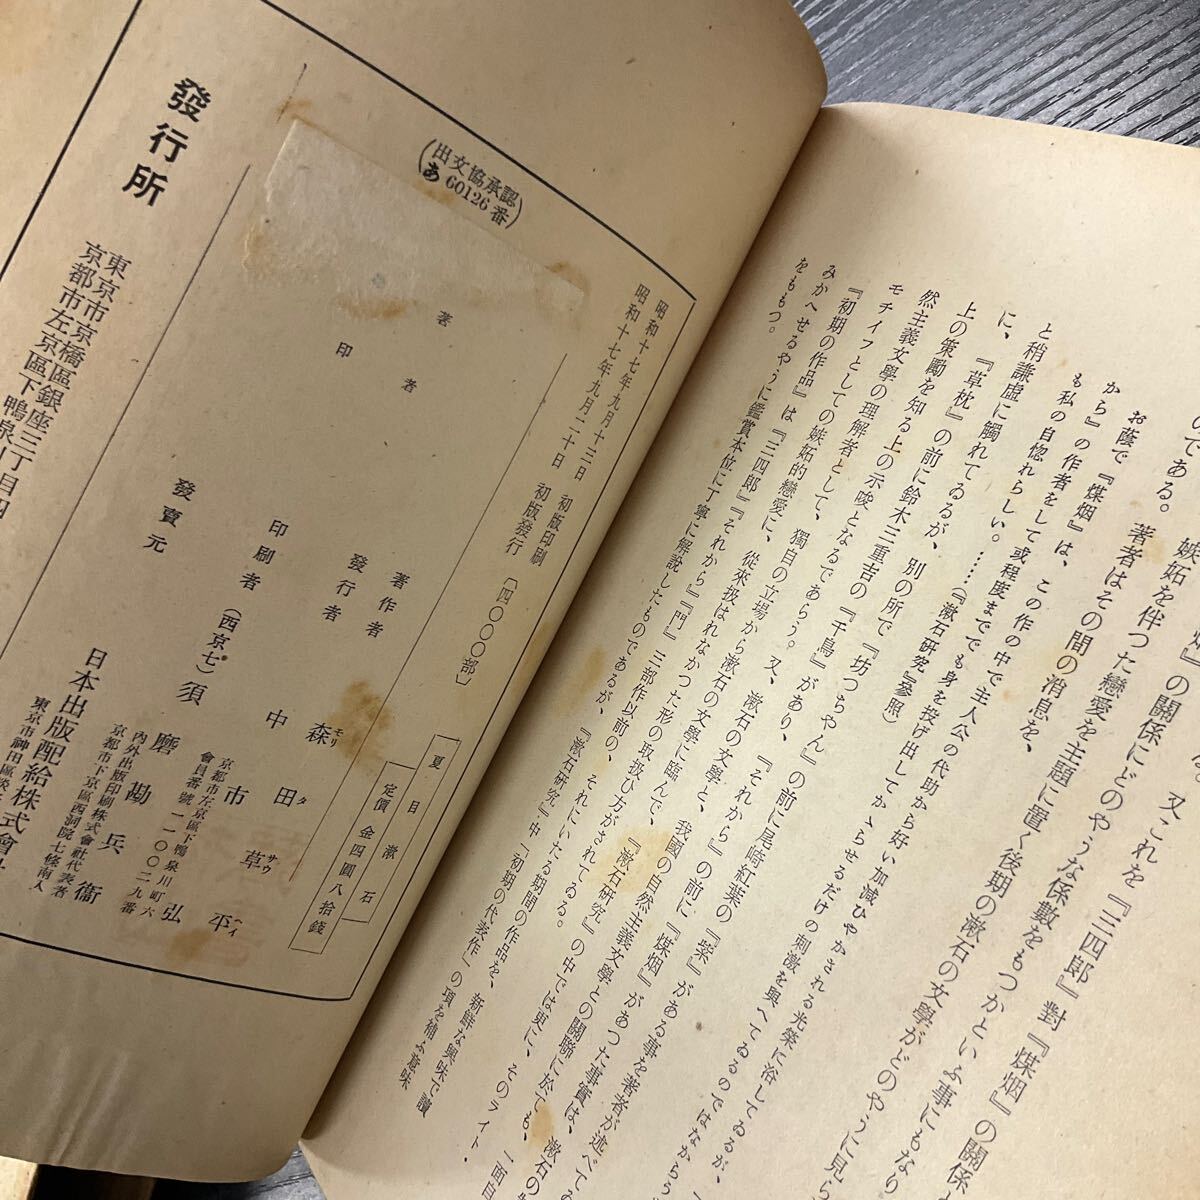 のである。
嫉妬を伴つた戀愛を主題に置く後期の漱石の文學がどのやうに見ら
著者はその間の消息を、
お蔭で『煤烟』は、この作の中で主人公の代助から好い加減ひやかされる光榮に浴してゐるが、
から』の作者をして或程度まででも身を投げ出してかゝらせるだけの刺激を與へてゐるのではなからう
も私の自惚れらしい。……(『漱石研究』參照)
と稍謙虛に觸れてゐるが、別の所で『坊つちやん』の前に尾崎紅葉の『紫』がある事を著者が述べてゐ
に、『草枕』の前に鈴木三重吉の『千鳥』があり、『それから』の前に『煤烟』があつた事實は、漱石の
上の策勵を知る上の示唆となるであらう。又、漱石の文學と、我國の自然主義文學との關聯に於ても、
然主義文學の理解者として、獨自の立場から漱石の文學に臨んで、『漱石研究』の中では更に、そのライト・
モチイフとしての嫉妬的戀愛に、從來扱はれなかつた形の取扱ひ方がされてゐる。
『初期の作品』は『三四郎』『それから』『門』三部作以前の、それにいたる期間の作品を、新鮮な興味で讀
みかへせるやうに鑑賞本位に丁寧に解說したものであるが、『漱石研究』中「初期の代表作」の項を補ふ意味
をももつ。
(出文協承認
あ60126番)
昭和十七年九月十三日 初版印刷
昭和十七年九月二十日 初版發行 〔四〇〇〇部〕
夏目漱石
定價 金四圓八拾錢
著者
印
著作者 森田草平
モリ タ サウ ヘイ
發行者 中市弘
京都市左京區下鴨泉川町六
會員番號一一〇〇二九番
印刷者 (西京七) 須磨勘兵衞
内外出版印刷株式會社代表者
京都市下京區西洞院七條南入
發賣元 日本出版配給株式會社
發行所
東京市京橋區銀座三丁目四
京都市左京區下鴨泉川